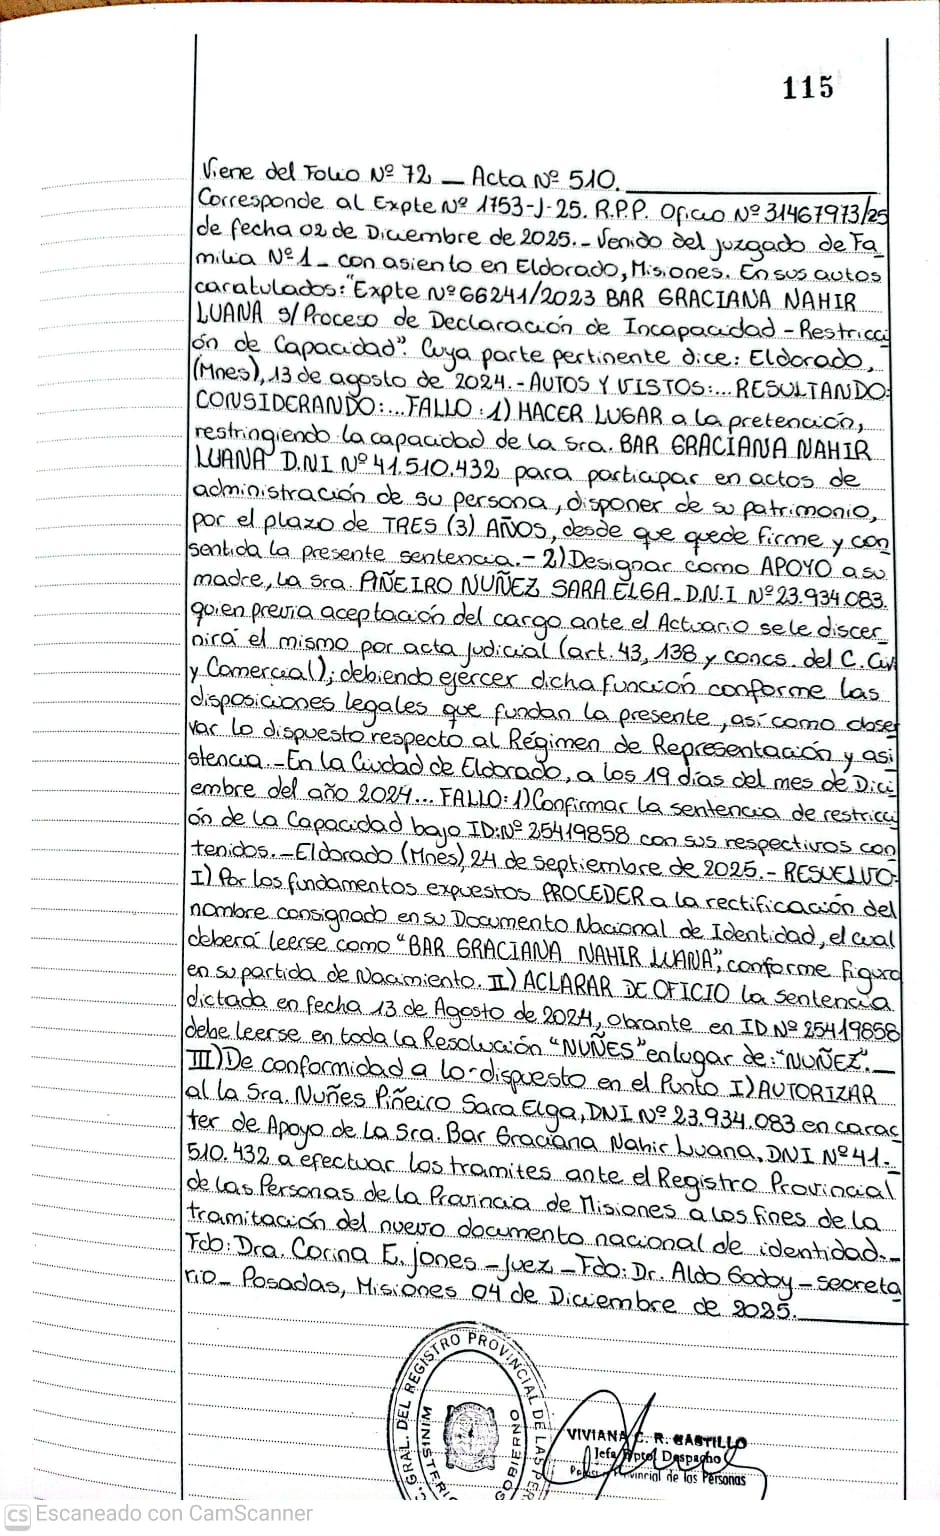 115
Viene del Folio Nº 72 — Acta Nº 510.
Corresponde al Expte Nº 1753-J-25. R.P.P. Oficio Nº 31467973/25
de fecha 02 de Diciembre de 2025.- Venido del juzgado de Fa
milia Nº 1 - con asiento en Eldorado, Misiones. En sus autos
caratulados: "Expte Nº 66241/2023 BAR GRACIANA NAHIR
LUANA s/ Proceso de Declaración de Incapacidad - Restricci
ón de Capacidad". Cuya parte pertinente dice: Eldorado,
(Mnes), 13 de agosto de 2024.- AUTOS Y VISTOS:... RESULTANDO:
CONSIDERANDO:... FALLO: 1) HACER LUGAR a la pretención,
restringiendo la capacidad de la Sra. BAR GRACIANA NAHIR
LUANA D.N.I Nº 41.510.432 para participar en actos de
administración de su persona, disponer de su patrimonio,
por el plazo de TRES (3) AÑOS, desde que quede firme y con
sentida la presente sentencia.- 2) Designar como APOYO a su
madre, la Sra. PIÑEIRO NUÑEZ SARA ELGA - D.N.I Nº 23.934.083.
quien previa aceptación del cargo ante el Actuario se le discer
nirá el mismo por acta judicial (art. 43, 138 y concs. del C. Civ
y Comercial); debiendo ejercer dicha función conforme las
disposiciones legales que fundan la presente, así como obser
var lo dispuesto respecto al Régimen de Representación y asi
stencia.- En la Ciudad de Eldorado, a los 19 días del mes de Dici
embre del año 2024... FALLO: 1) Confirmar la sentencia de restricci
ón de la Capacidad bajo ID: Nº 25419858 con sus respectivos con
tenidos.- Eldorado (Mnes) 24 de septiembre de 2025.- RESUELVO:
I) Por los fundamentos expuestos PROCEDER a la rectificación del
nombre consignado en su Documento Nacional de Identidad, el cual
deberá leerse como "BAR GRACIANA NAHIR LUANA", conforme figura
en su partida de Nacimiento. II) ACLARAR DE OFICIO la sentencia
dictada en fecha 13 de Agosto de 2024, obrante en ID Nº 25419858
debe leerse en toda la Resolución "NUÑES" en lugar de: "NUÑEZ".-
III) De conformidad a lo dispuesto en el Punto I) AUTORIZAR
al la Sra. Nuñes Piñeiro Sara Elga, DNI Nº 23.934.083 en carac
ter de Apoyo de la Sra. Bar Graciana Nahir Luana, DNI Nº 41.
510.432 a efectuar los tramites ante el Registro Provincial
de las Personas de la Provincia de Misiones a los fines de la
tramitación del nuevo documento nacional de identidad.-
Fdo: Dra. Corina E. Jones - Juez - Fdo: Dr. Aldo Godoy - secreta
rio - Posadas, Misiones 04 de Diciembre de 2025.
GRAL. DEL REGISTRO PROVINCIAL DE LAS PER
MINISTERIO
GOBIERNO
VIVIANA C. R. CASTILLO
Jefa Dptol Despacho
Provincial de las Personas
CS Escaneado con CamScanner